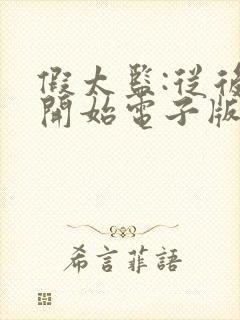 假太監:從後
開始電子版
希言菲語